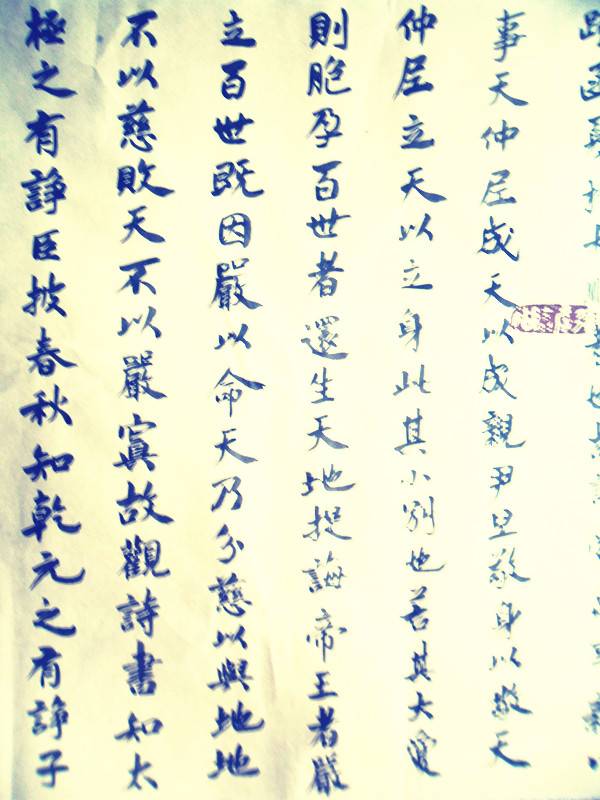 事天仲尼成天以成親尹旦敬身以敬天
仲尼立天以立身此其小別也若其大愛
則胞孕百世者還生天地捉誨帝王者嚴
立百世既因嚴以命天乃分慈以與地地
不以慈敗天不以嚴寘故觀詩書知太
極之有諍臣披春秋知乾元之有諍子